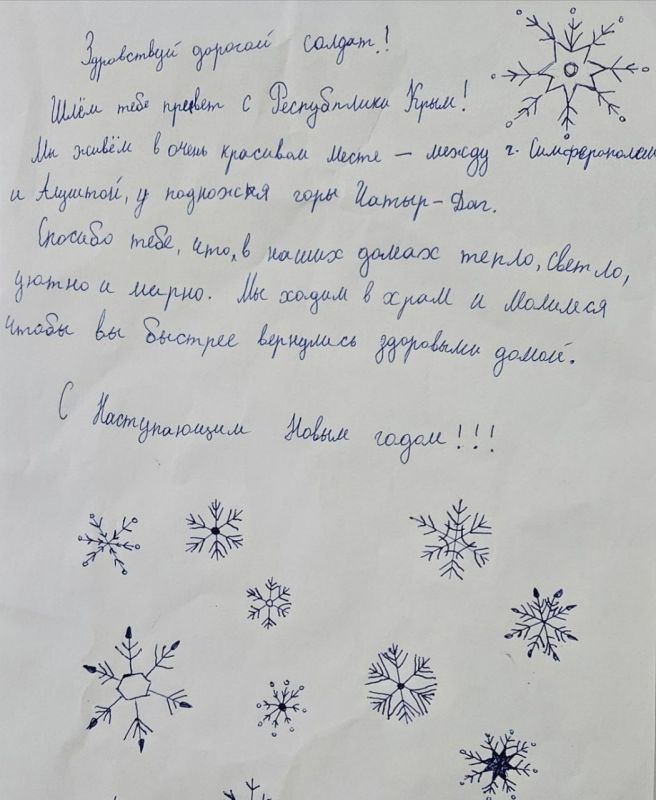 Здравствуй дорогой солдат!
Шлём тебе превет с Республики Крым!
Мы живём в очень красивом месте – между г. Симферополем
и Алуштой, у подножжя горы Чатыр-Даг.
Спосибо тебе, что, в наших домах тепло, светло,
уютно и мирно. Мы ходим в храм и молимся
чтобы вы быстрее вернулись здоровыми домой.
С Наступающим Новым годом!!!